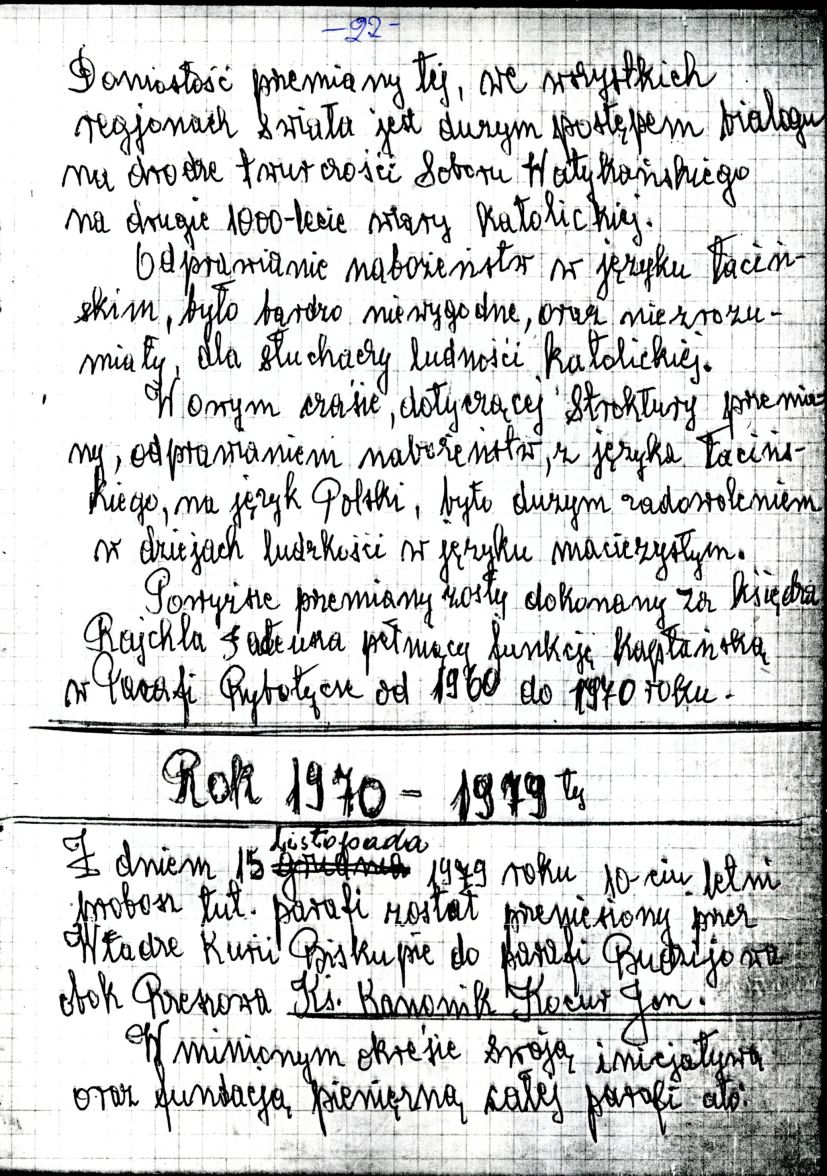 -22-
Doniosłość przemiany tej, we wszystkich
regjonach świata jest dużym postępem Dialogu
na drodze twurczości Soboru Watykańskiego
na drugie 1000-lecie wiary katolickiej.
Odprawianie nabożeństw w języku łaciń-
skim, było bardzo niewygodne, oraz niezrozu-
miały, dla słuchaczy ludności katolickiej.
W owym czaśie, dotyczącej Stroktury przemia-
ny, odprawianiem nabożeństw, z języka łacińs-
kiego, na język Polski, było dużym zadowoleniem
w dziejach ludzkości w języku macieżystym.
Powyższe przemiany zosły dokonany za księdza
Rajchla Tadeusza pełniący funkcję kapłańską
w Parafi Rybotycze od 1960 do 1970 roku.
Rok 1970 - 1979 ty
Listopada
Z dniem 15 grudnia 1979 roku 10-ciu letni
probosz tut. parafi został przeniesiony przez
Władze Kurii Biskupie do parafi Budzijowa
obok Rzeszowa Ks. Kanonik Kocur Jan.
W minionym okreśie swoją inicjatywą
oraz fundacją pieniężną całej parafi ało: